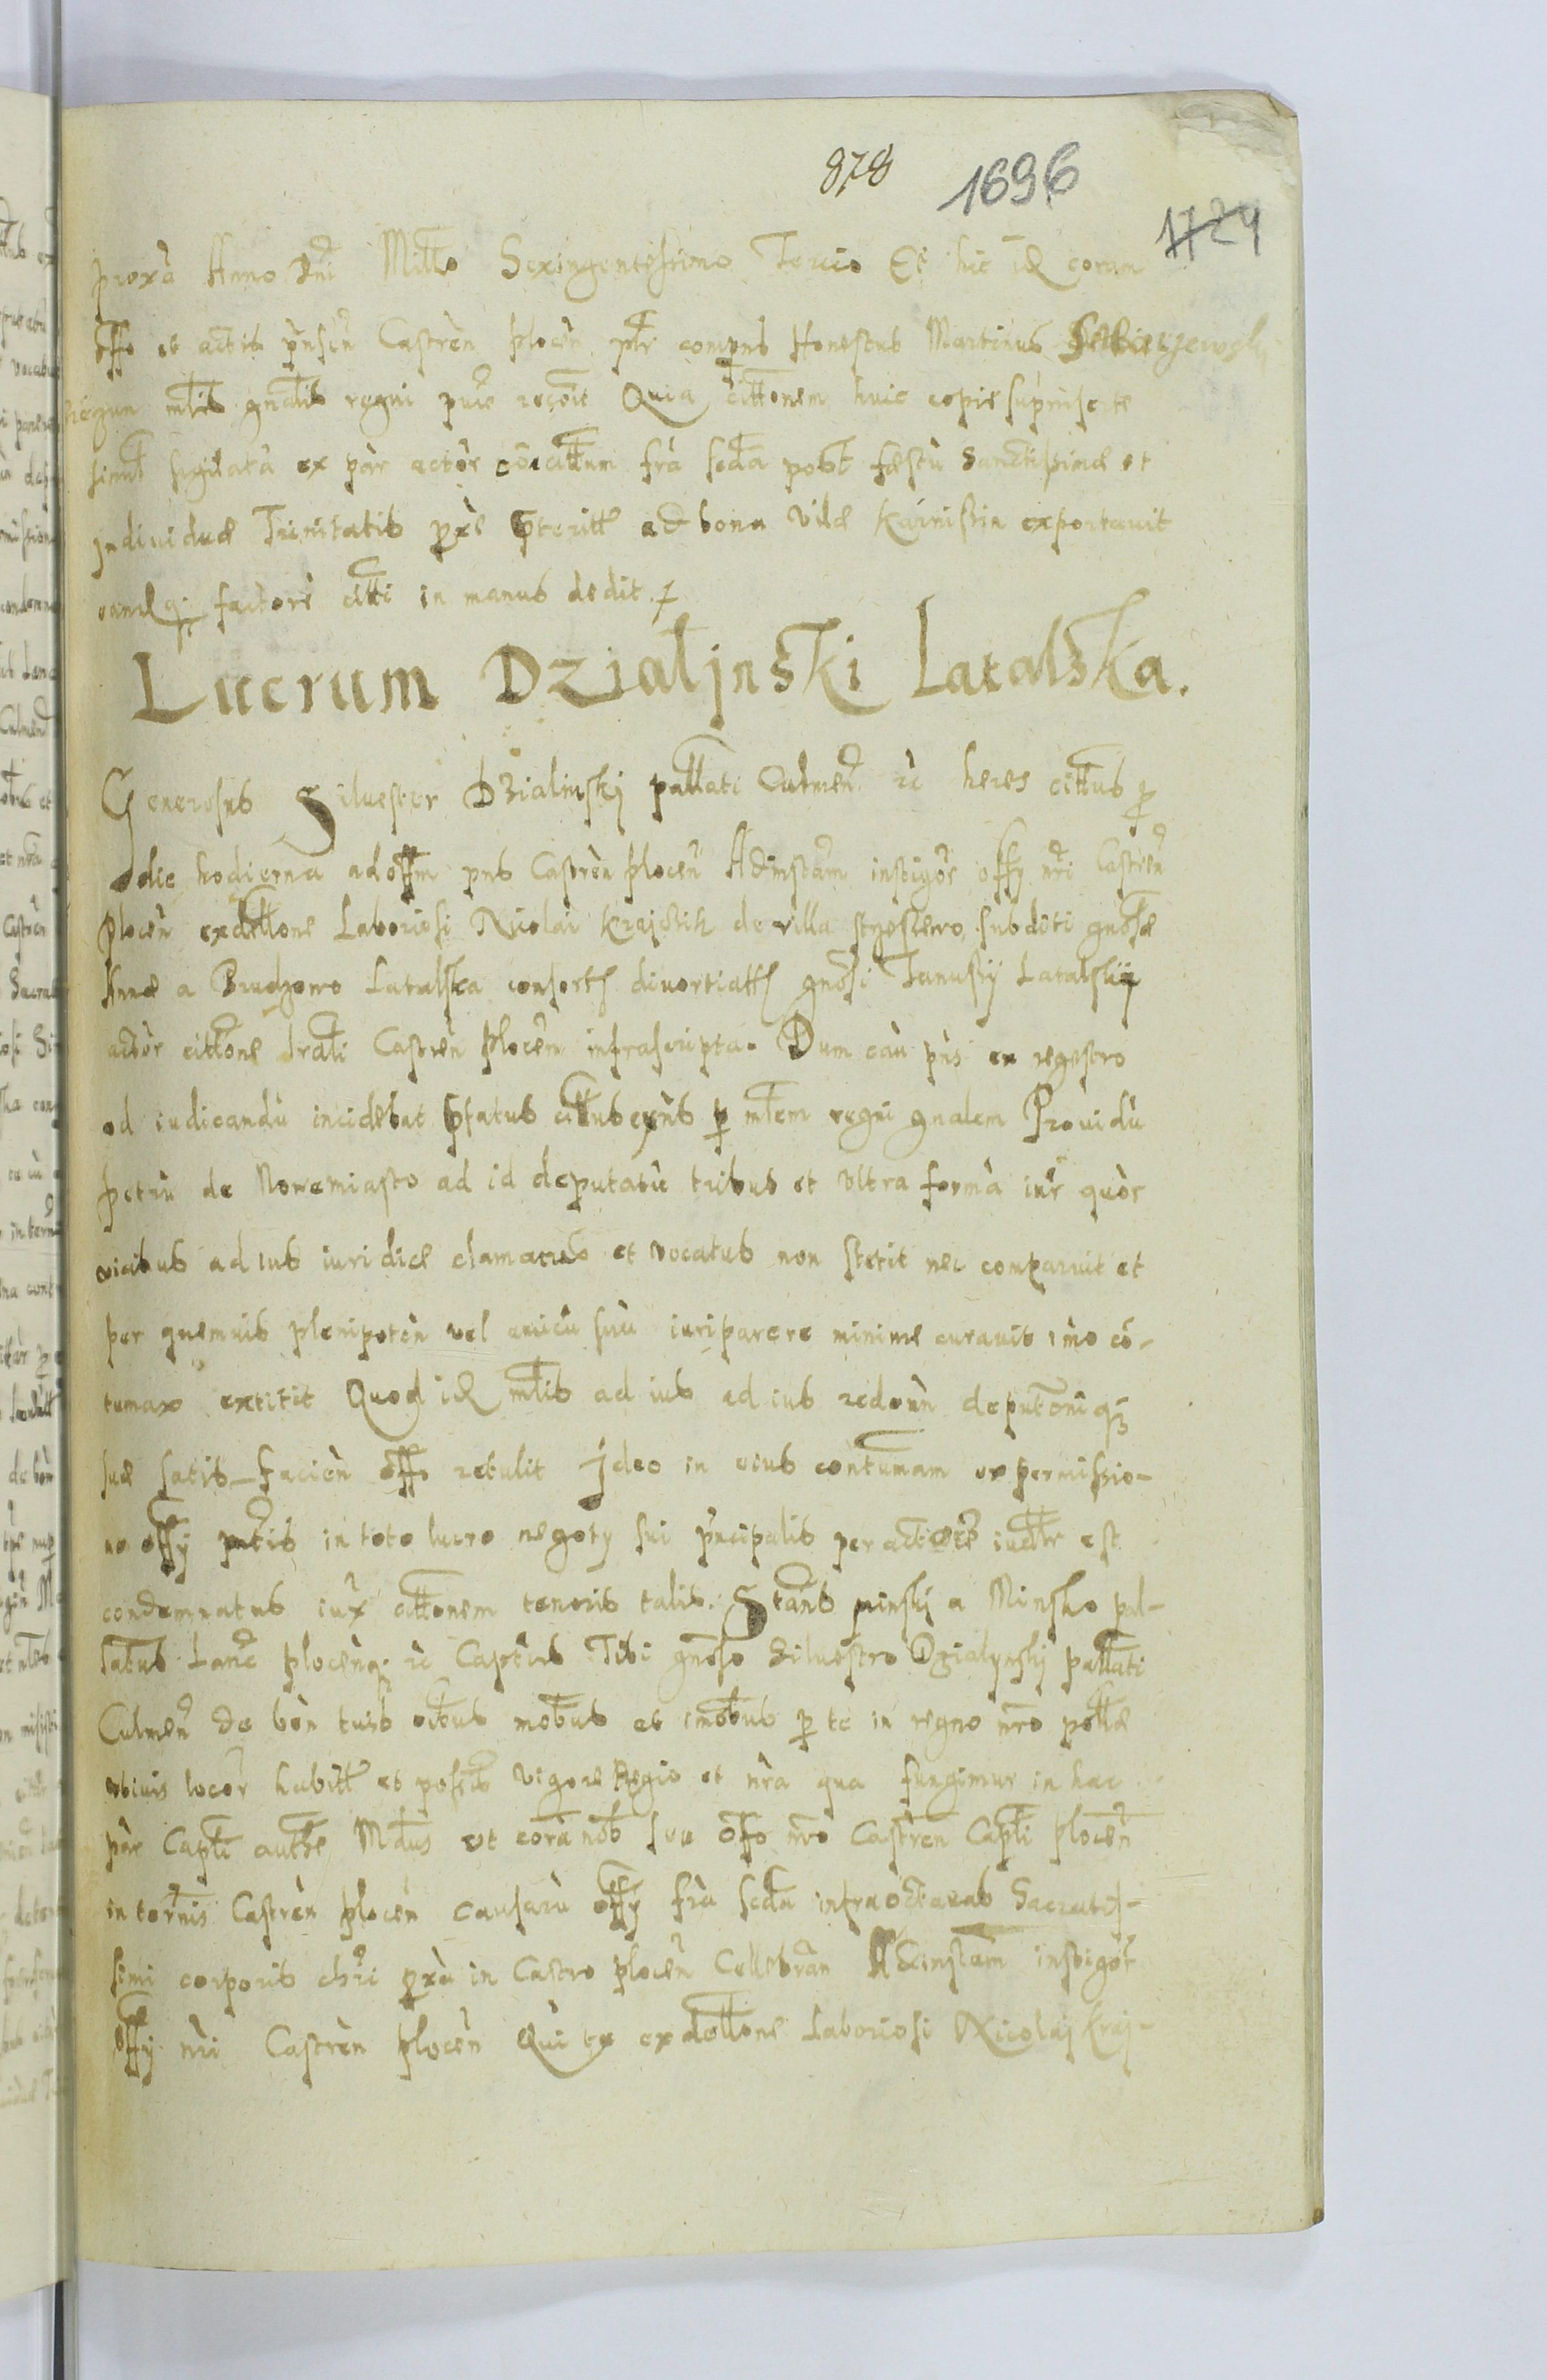 878 1696
1724
proxa Anno Dni Millo Sexingentesimo Tercio Et hic idem coram
offo et actis pnsin Castren Plocen ptr comprns Honestus Martinus
mtlis gnalis regni pure recoit Quia cittonem huic copie suprinserte
simul sigilata ex par actor fra scda post festu Sanctissimae et
Individuae Trinitatis pxe pteritt ad bona vilae exportavit
eamq factore citti in manus dedit
Lucrum Dzialinski Latalska.
Generosus Siluester Dzialinskj pallati Culmen rc heres cittus p
die hodierna ad offm pns Castren Plocen Ad instam instigor offy nri Castren
plocen ex dellone Laboriosi Nicolai Krajssik de villa subditi gnosae
Annae a Brudzewo Latalska consortis divortiatt gnosi Janussij Latalskij
actor cittone trali Castren Plocen infrascripta. Dum cau pns ex regestro
ad iudicandu incidebat pfatus cittus p mtlem regni gnalem Providu
Petru de Nowemiasto ad id deputatu tribus et vltra forma iur quor
vicibus ad ius iuridice clamatus et vocatus non stetit nec comparuit et
per quemvis plenipoten vel amicu suu iuri parere minime curavit imo co-
tumax extitit Quod idem mtlis ad ius ad ius redeun deputoniq
suae satis-facien offo retulit Ideo in eius contumam ex permissio-
ne offy pntis in toto lucro negoty sui pncipalis per actorem iudltr est
condemnatus iux cittonem tenoris talis. Stans minskj a Minsko pal-
latus Lanc Plocenq rc Capteus Tibi gnoso Siluestro Dzialynskj pallati
Culmen de bon tuis oibus mobus et imobus p te in regno nro pollae
vbivis locor habitt et possis vigore Regio et nra qua fungimur in hac
par Capti authe Mdus vt cora nob seu offo nro Castren Capti Plocen
in ternis Castren Plocen causaru offy fra scda infra octavas Sacratis-
simi corporis chri pxa in Castro plocen Cellebran Ad instam instigor
offy nri Castren Plocen Qui te ex dellone Laboriosi Nicolaj Kraj-